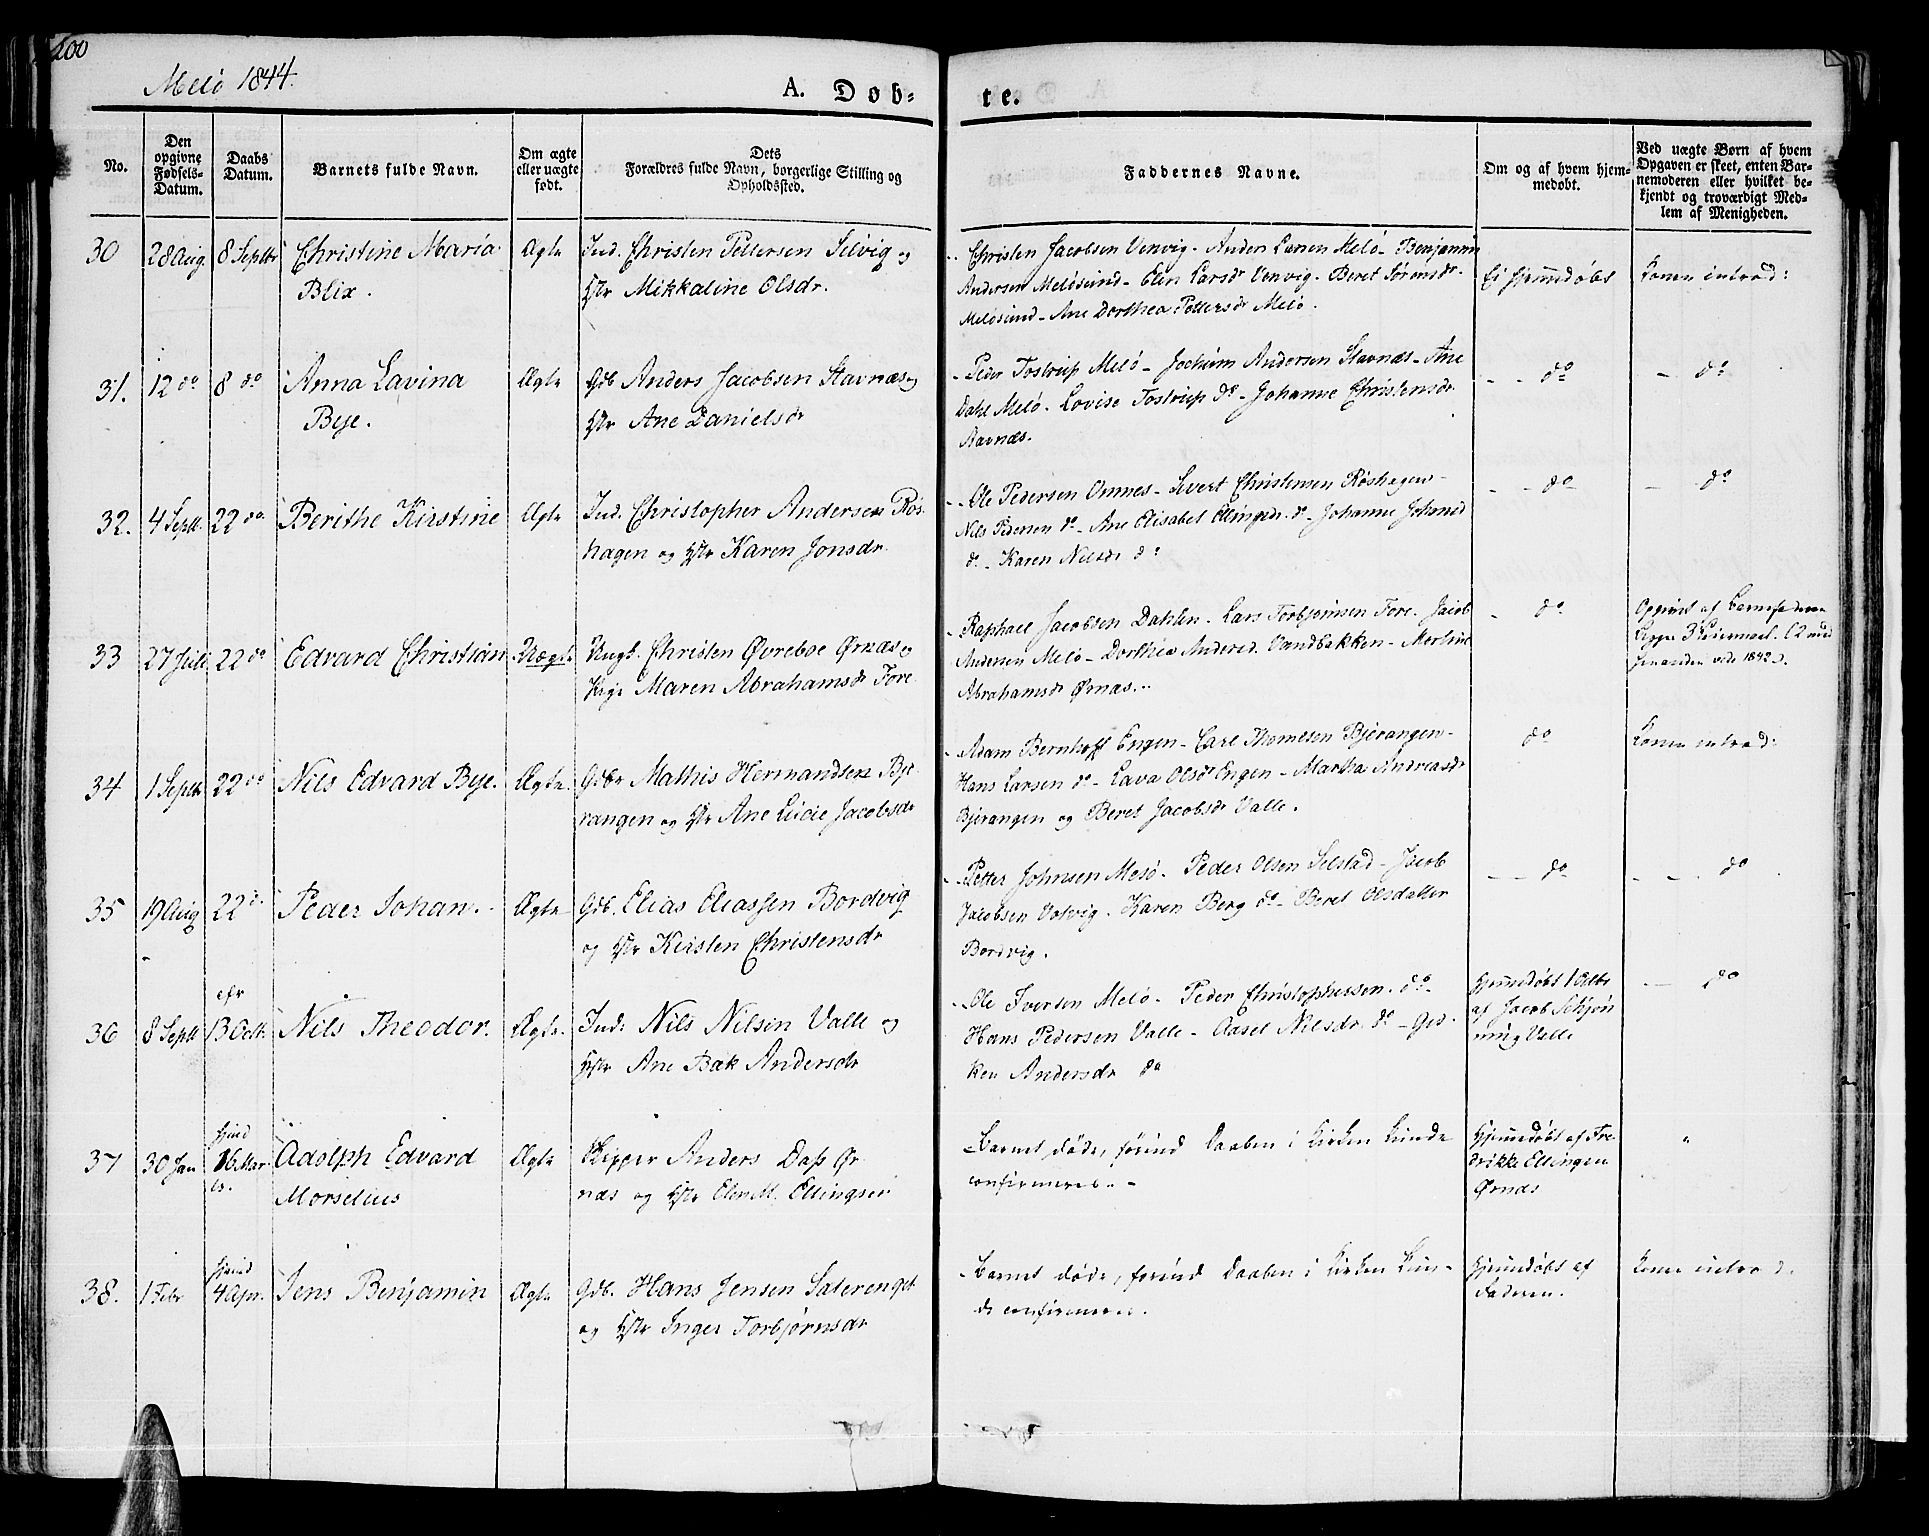 200
Melö 1844.
A. Døb-
te.
No.
Den opgivne Fødsels-Datum.
Daabs Datum.
Barnets fulde Navn.
Om ægte eller uægte født.
Dets Forældres fulde Navn, borgerlige Stilling og Opholdssted.
Faddernes Navne.
Om og af hvem hjem-medøbt.
Ved uægte Børn af hvem Opgaven er skeet, enten Bar-nemoderen eller hvilket be-kjendt og troværdigt Med-lem af Menigheden.
30 28 Aug. 8 Septbr Christine Maria Ægte Ind. Christen Pettersen Selvig og
Blix. Hstr Mikkaline Olsdr.
Christen Jacobsen Venvig - Anders Larsen Melö - Benjamin
Andersen Melösund - Elen Larsdr Venvig - Beret Sörensdr
Melösund - Ane Dorthea Pettersdr Melö.
Ei hjemmedöbt
Konen introd:
31. 12 do 8 do Anna Lavina Ægte Gdb Anders Jacobsen Stavnæs og
Bye. Hstr Ane Danielsdr
Peder Tostrup Melö - Jochum Andersen Stavnæs - Ane
Dahl Melö - Lovise Tostrup do - Johanne Christensdr
- - do
- do
32. 4 Septb. 22 do Berithe Kirstine Ægte Ind. Christopher Andersen Rös-
hagen og Hstr Karen Jonsdr.
Ole Pedersen Omnes - Sivert Christensen Röshagen -
Nils Pedersen do - Ane Elisabet Ellingsdr. do - Johanne Johansd
do - Karen Nilsdr do
- - do -
- do
33 27 Juli 22 do Edvard Christian Uægte Ungk. Christen Øvreboe Ørnæs og
Pige Maren Abrahamsdr Fore
Raphael Jacobsen Dahlen - Lars Torbjörnsen Fore - Jacob
Andersen Melö - Dorthea Andersd. Vandbakken - Merhine
Abrahamsdr Ørnæs.
- do
Opgivet af Barnefaderen
1842
34 1 Septbr 22 do Nils Edvard Bye. Ægte. Gdbr Mathis Hermandsen Bje-
rangen og Hstr Ane Lucie Jacobsdr
Adam Bernhoft Engen - Carl Thomesen Bjerangen -
Hans Larsen do - Lava Olsdr Engen - Martha Andreasdr
Bjerangen og Beret Jacobsdr Valle.
do
Konen introd:
35 19 Aug 22 d. Peder Johan. Ægte Gdb. Elias Eliassen Bordvig
og Hstr Kirsten Christensdr
Petter Johnsen Mesö - Peder Olsen Selstad - Jacob
Jacobsen Votvig - Karen Berg do - Beret Olsdatter
Bordvig.
- - do
- - do
36 8 Septb 13 Octb. Nils Theodor. Ægte. Ind: Nils Nilsen Valle og
Hstr Ane Bak Andersdr
Ole Iversen Melö - Peder Christophersen do -
Hans Pedersen Valle - Aasel Nilsdr. do - Gid-
ken Andersdr do
hjemmedöbt 1 Octbr
af Jacob Schjön
ning Valle
- do
37 30 Jan 16 Mar Adolph Edvard Ægte Skipper Anders Dass Ør-
Morselius næs og Hstr Elen M. Ellingsen
Barnet döde, førend Daaben i Kirken kunde
confirmeres. -
hjemmedöbt af Fre-
drikke Ellingsen
Ørnæs
"
38. 1 Febr 4 Apr. Jens Benjamin Ægte Gdb. Hans Jensen Saterenget
og Hstr Inger Torbjörnsdr
- Barnet döde, førend Daaben i Kirken kun-
de confirmeres.
hjemmedöbt af
Faderen.
Konen introd.